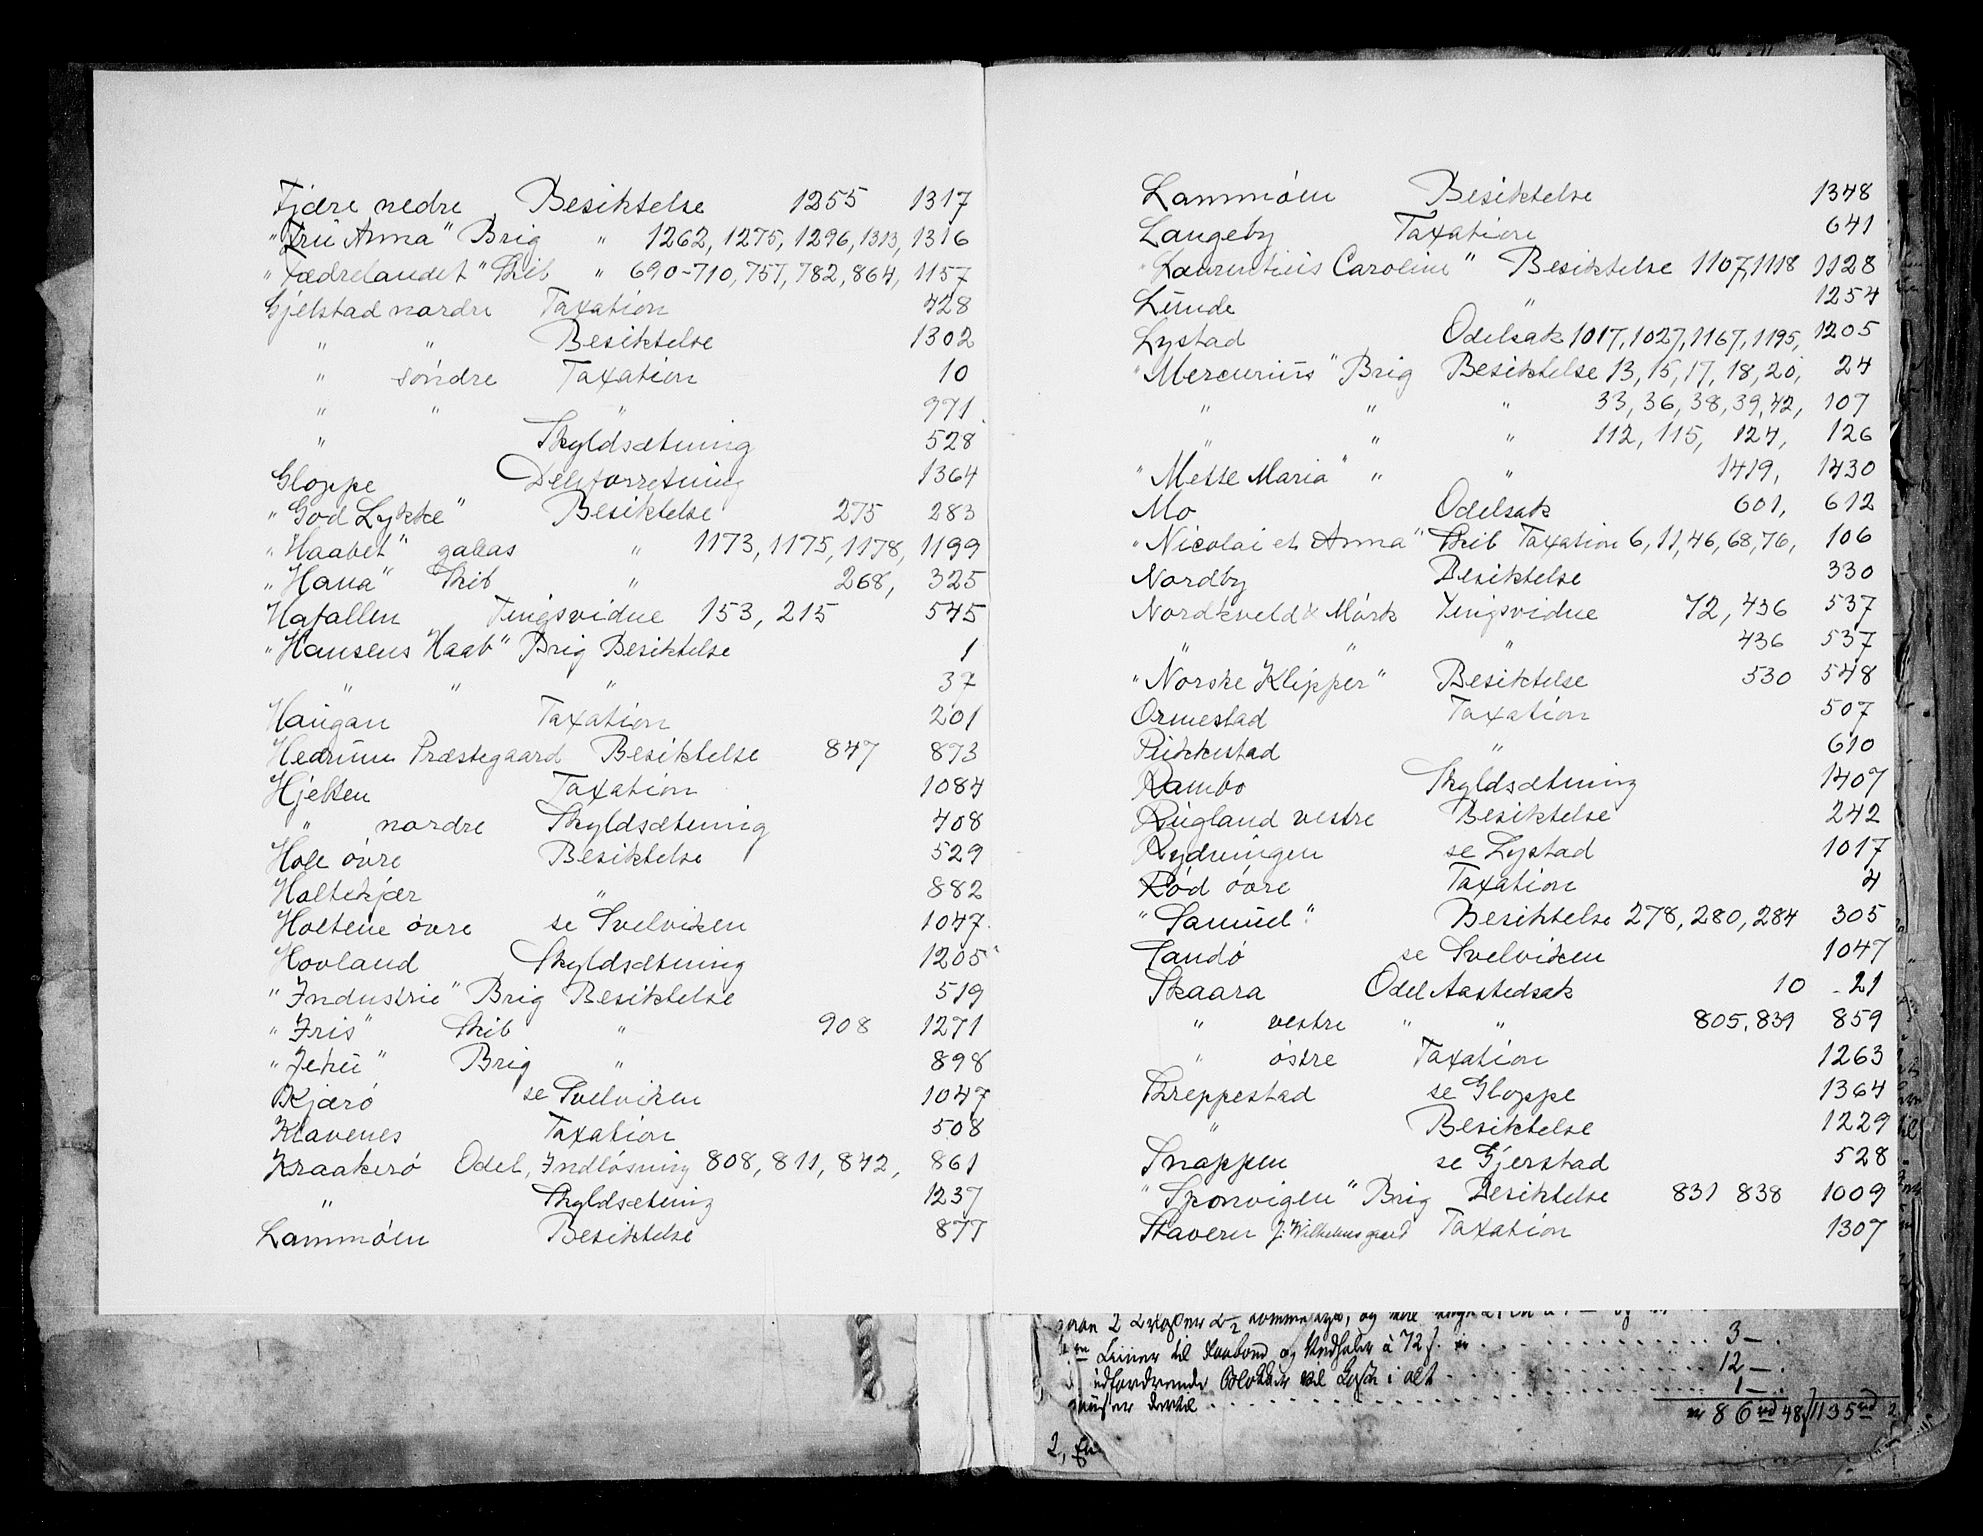 Fjære nedre Besiktelse 1255 1317
"Fru Anna" Brig " 1262, 1275, 1296, 1313, 1316
"Fædrelandet" Skib " 690-710, 757, 782, 864, 1157
Gjelstad nordre Taxation 428
" " Besiktelse 1302
" söndre Taxation 10
" " " 971
" Skyldsætning 528
Gloppe Deleforretning 1364
"God Lykke" Besiktelse 275 283
"Haabet" galeas " 1173, 1175, 1178, 1199
"Hana" Skib " 268, 325
Hafallen Tingsvidne 153, 215 545
"Hansens Haab" Brig Besiktelse 1
" " " 37
Haugan Taxation 201
Hedrum Præstegaard Besiktelse 847 873
Hjelten Taxation 1084
" nordre Skyldsætning 408
Hole övre Besiktelse 529
Holtekjær " 882
Holtene övre se Svelviken 1047
Hovland Skyldsætning 1205
"Industrie" Brig Besiktelse 519
"Iris" Skib " 908 1271
"Jehu" Brig " 898
Kjærö se Svelviken 1047
Klavenes Taxation 508
Kraakerö Odel, Indlösning 808, 811, 842, 861
" Skyldsætning 1237
Lammöen Besiktelse 877
Lammöen Besiktelse 1348
Langeby Taxation 641
"Laurentius Caroline" Besiktelse 1107, 1118 1128
Lunde " 1254
Lystad Odelsak 1017, 1027, 1167, 1195, 1205
"Mercurius" Brig Besiktelse 13, 15, 17, 18, 20, 24
" " " 33, 36, 38, 39, 42, 107
" " " 112, 115, 124, 126
"Mette Maria" " " 1419, 1430
Mo Odelsak 601, 612
"Nicolai et Anna" Skib Taxation 6, 11, 46, 68, 76, 106
Nordby Besiktelse 330
Nordkveld & Mörk Tingsvidne 72, 436 537
" " " 436 537
"Norske Klipper" Besiktelse 530 548
Ormestad Taxation 507
Rukkestad " 610
Rambo Skyldsætning 1407
Rugland vestre Besiktelse 242
Rydningen se Lystad 1017
Röd övre Taxation 4
"Samuel" Besiktelse 278, 280, 284 305
Sandö se Svelviken 1047
Skaara Odel Aastedsak 10 - 21
" vestre " " 805, 839 859
" östre Taxation 1263
Skreppestad se Gloppe 1364
" Besiktelse 1229
Snappen se Gjerstad 528
"Spornvigen" Brig Besiktelse 831 838 1009
Stavern J. Wilhelms gaard Taxation 1307
3 -
Linier til og à 72 s. 12 -
i alt 1 -
dertil 86 rd 48 s 135 rd
2,